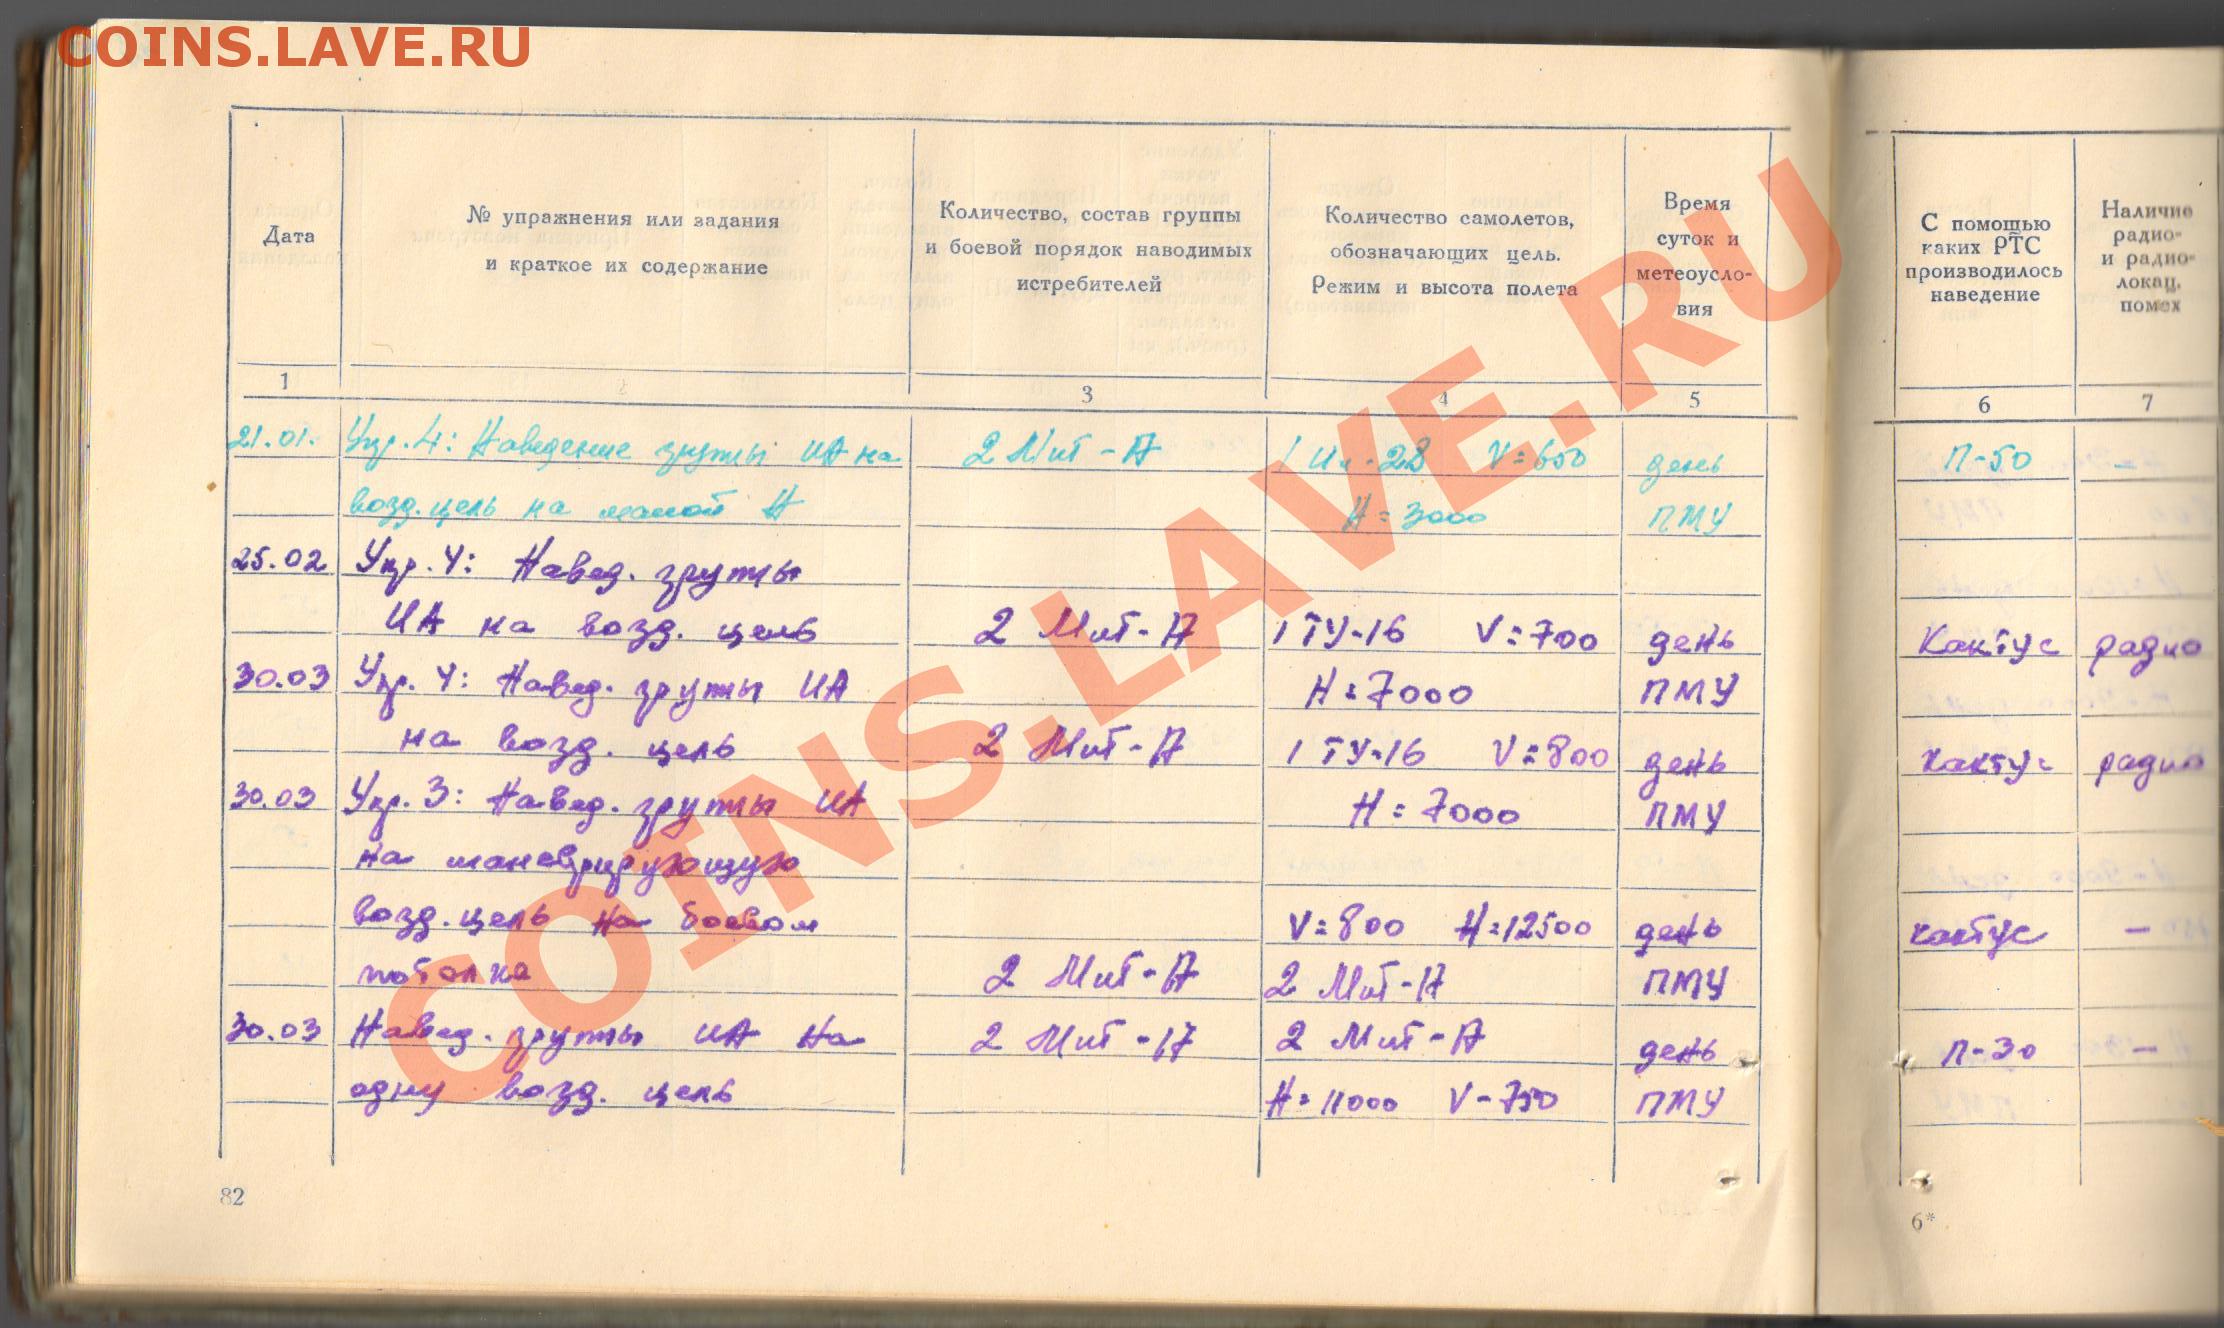 COINS.LAVE.RU
Дата
№ упражнения или задания
и краткое их содержание
Количество, состав группы
и боевой порядок наводимых
истребителей
Количество самолетов,
обозначающих цель.
Режим и высота полета
Время
суток и
метеоусло-
вия
С помощью
каких РТС
производилось
наведение
Наличие
радио-
и радио-
локац.
помех
1 2 3 4 5 6 7
21.01. Упр. 4: Наведение группы ИА на 2 Миг-17 1 Ил-28 V=650 день П-50 –
возд. цель на малой Н Н=3000 ПМУ
25.02 Упр. 4: Навед. группы
ИА на возд. цель 2 Миг-17 1 ТУ-16 V=700 день Кактус радио
30.03 Упр. 4: Навед. группы ИА Н=7000 ПМУ
на возд. цель 2 Миг-17 1 ТУ-16 V=800 день кактус радио
30.03 Упр. 3: Навед. группы ИА Н=7000 ПМУ
на маневрирующую
возд. цель на боевом V=800 Н=12500 день кактус –
потолке 2 Миг-17 2 Миг-17 ПМУ
30.03 Навед. группы ИА на 2 Миг-17 2 Миг-17 день П-30 –
одну возд. цель Н=11000 V-750 ПМУ
82
6*
COINS.LAVE.RU